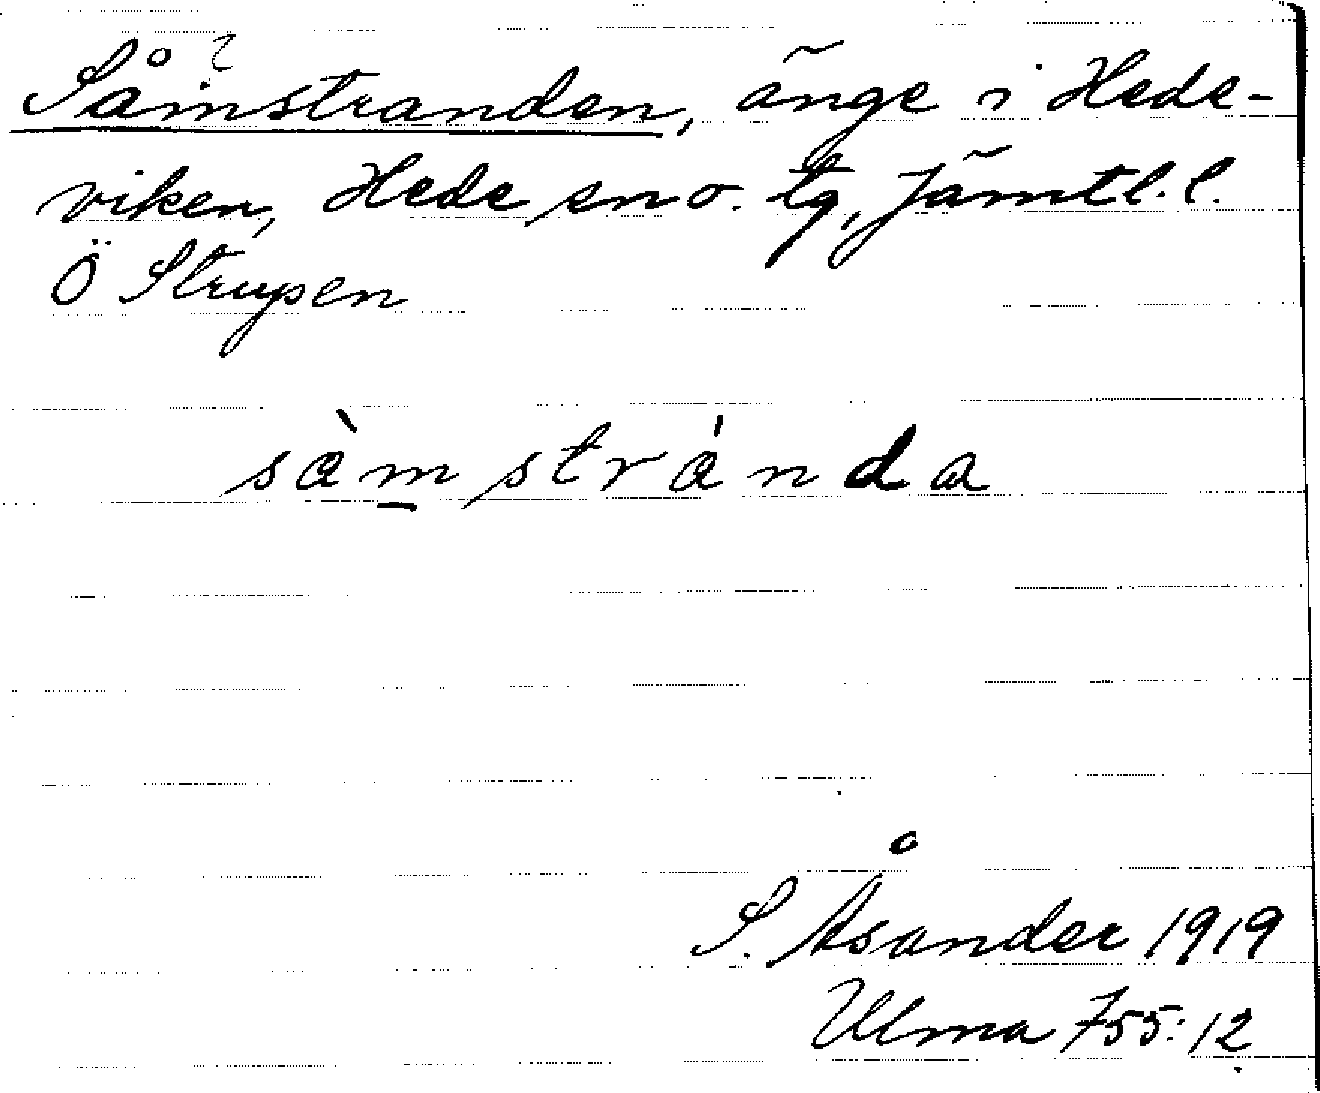 Såmstranden, änge i Hede-
viken, Hede sn o. tg, Jämtl. l.
Ö Strupen
sàmstránda
S. Åsander 1919
Ulma 755:12